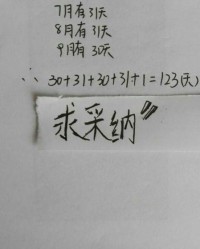 7月有31天
8月有31天
9月有30天
∴ 30+31+30+31+1=123(天)
求采纳"